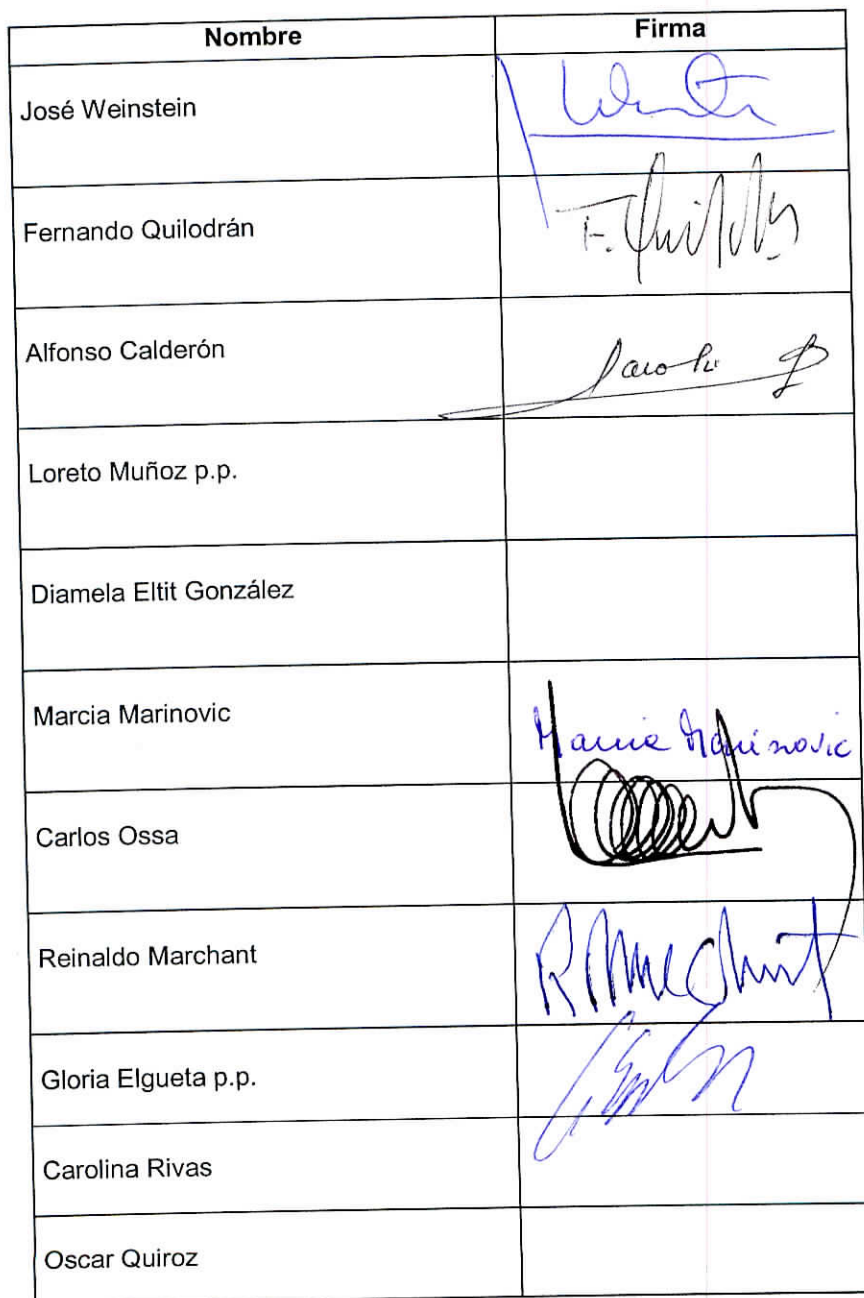 Nombre Firma
José Weinstein
Fernando Quilodrán
Alfonso Calderón
Loreto Muñoz p.p.
Diamela Eltit González
Marcia Marinovic Marcia Marinovic
Carlos Ossa
Reinaldo Marchant R Marchant
Gloria Elgueta p.p.
Carolina Rivas
Oscar Quiroz